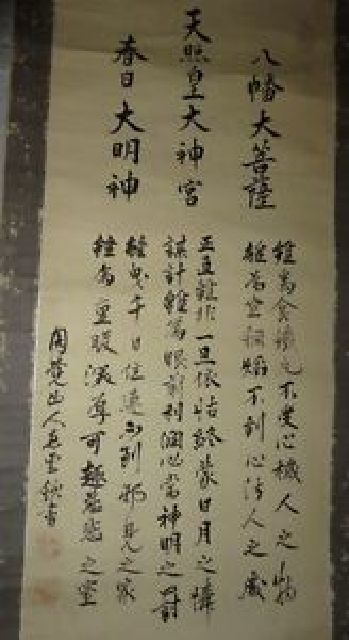 八幡大菩薩
雖為食鐵丸不受心穢人之物
雖為坐銅焔不到心汚人之處
天照皇大神宮
正直雖非一旦依怙終蒙日月之憐
謀計雖為眼前利潤必當神明之罰
春日大明神
雖曳千日注連不到邪見之家
雖為重服深厚可趣慈悲之室